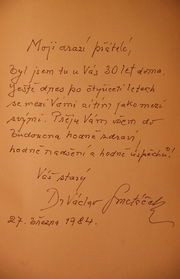 Moji drazí přátelé,
byl jsem tu u Vás 30 let doma.
Ještě dnes po čtyřiceti letech
se mezi Vámi cítím jako mezi
svými. Přeju Vám všem do
budoucna hodně zdraví
hodně nadšení a hodně úspěchů!
Váš starý
Dr Václav Smetáček
27. března 1984.